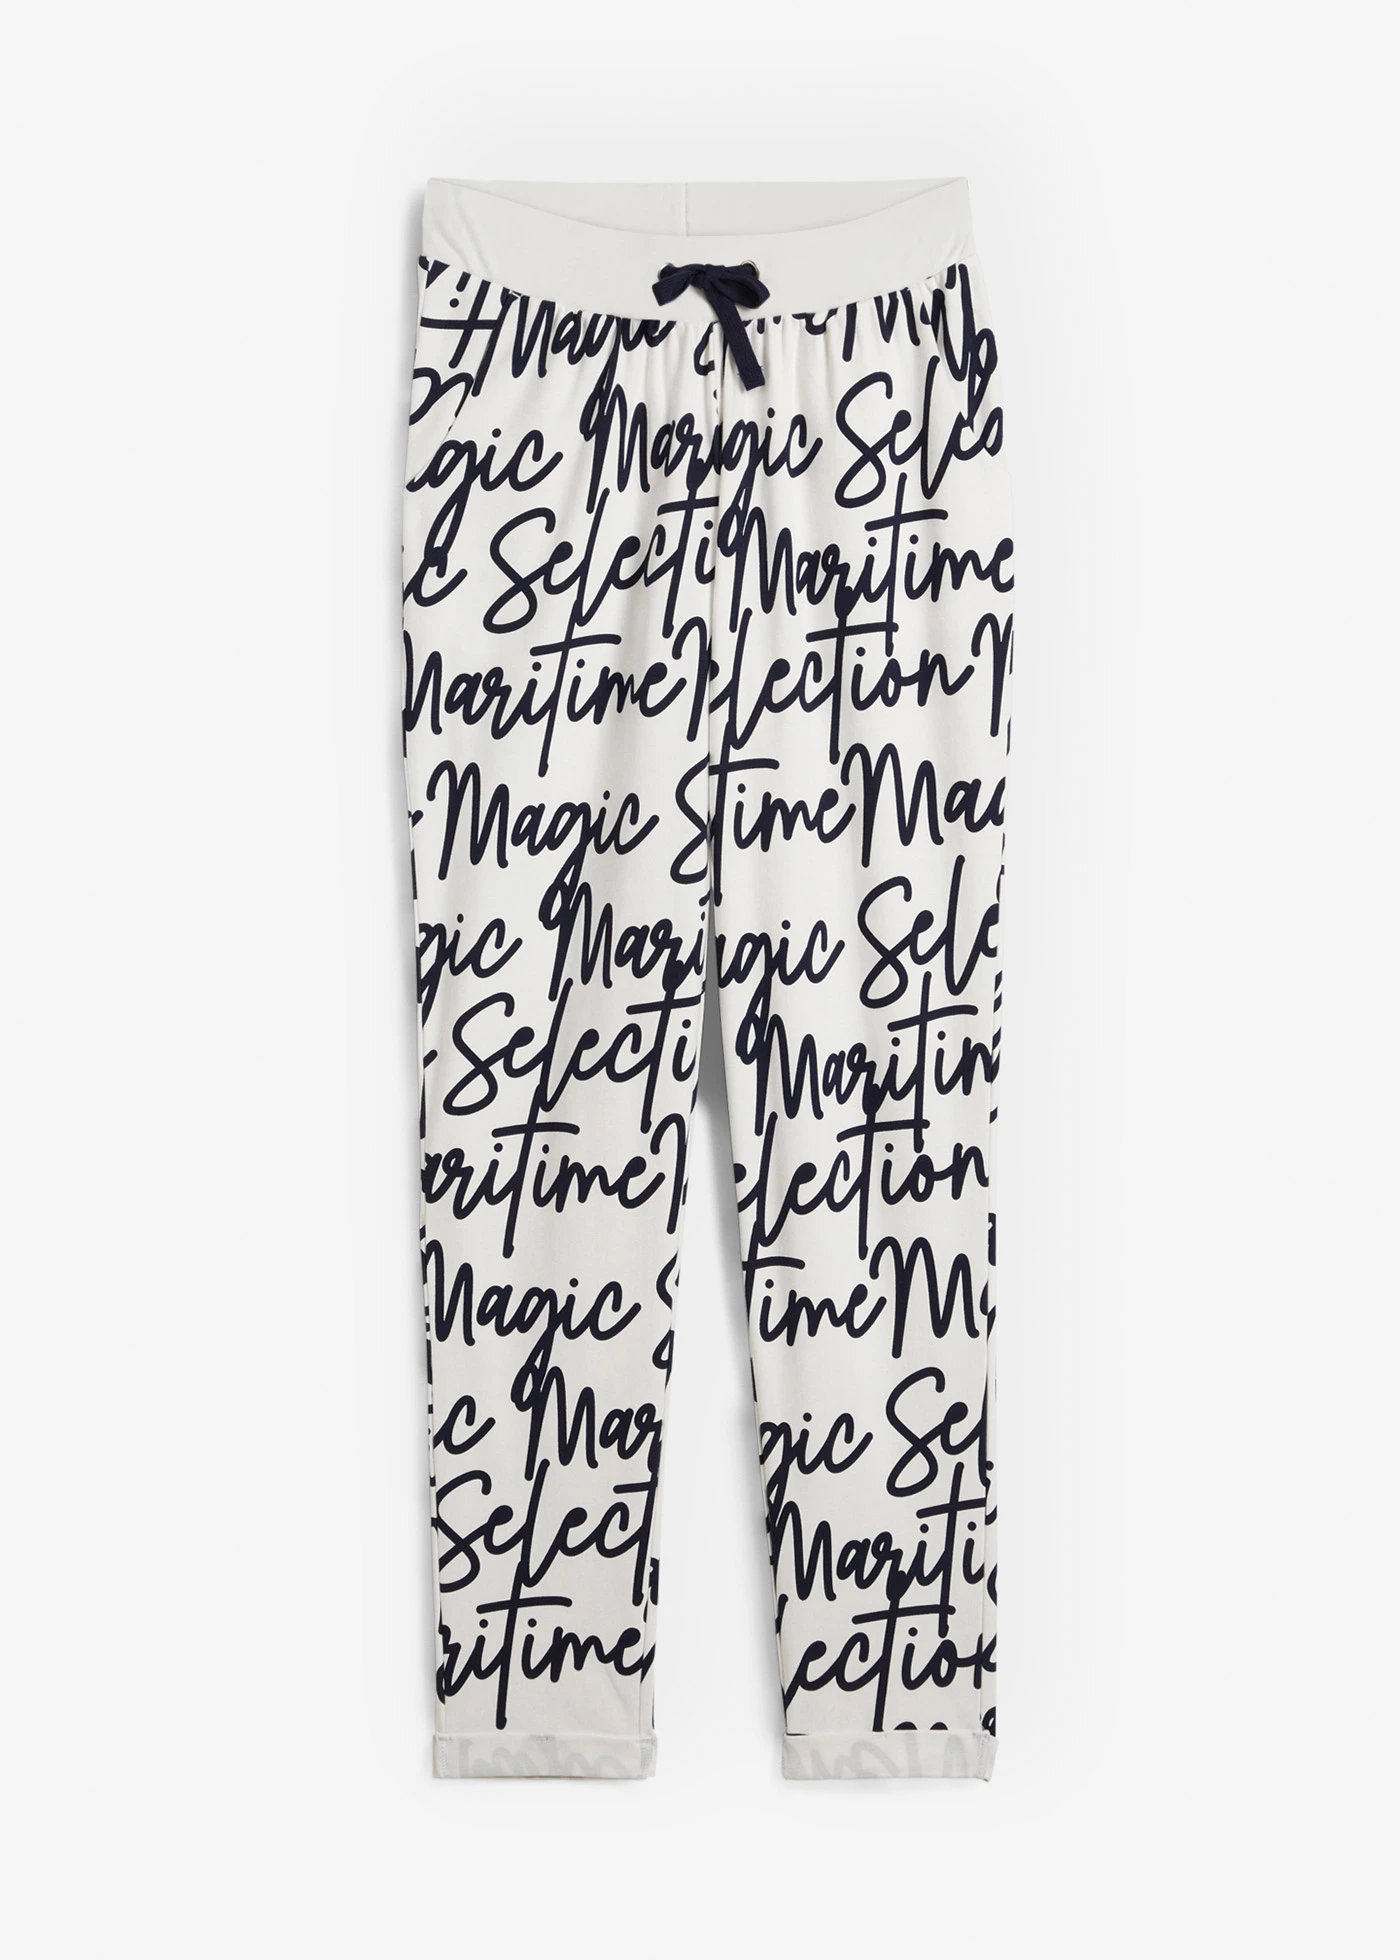 Magic
gic Mar gic Selec
c Selecti Maritime
Maritime lection
Magic S time Mag
gic Mari agic Sele
Selecti Maritim
aritime election
Magic S time Ma
c Mar gic Sel
Select Mariti
ritime lection